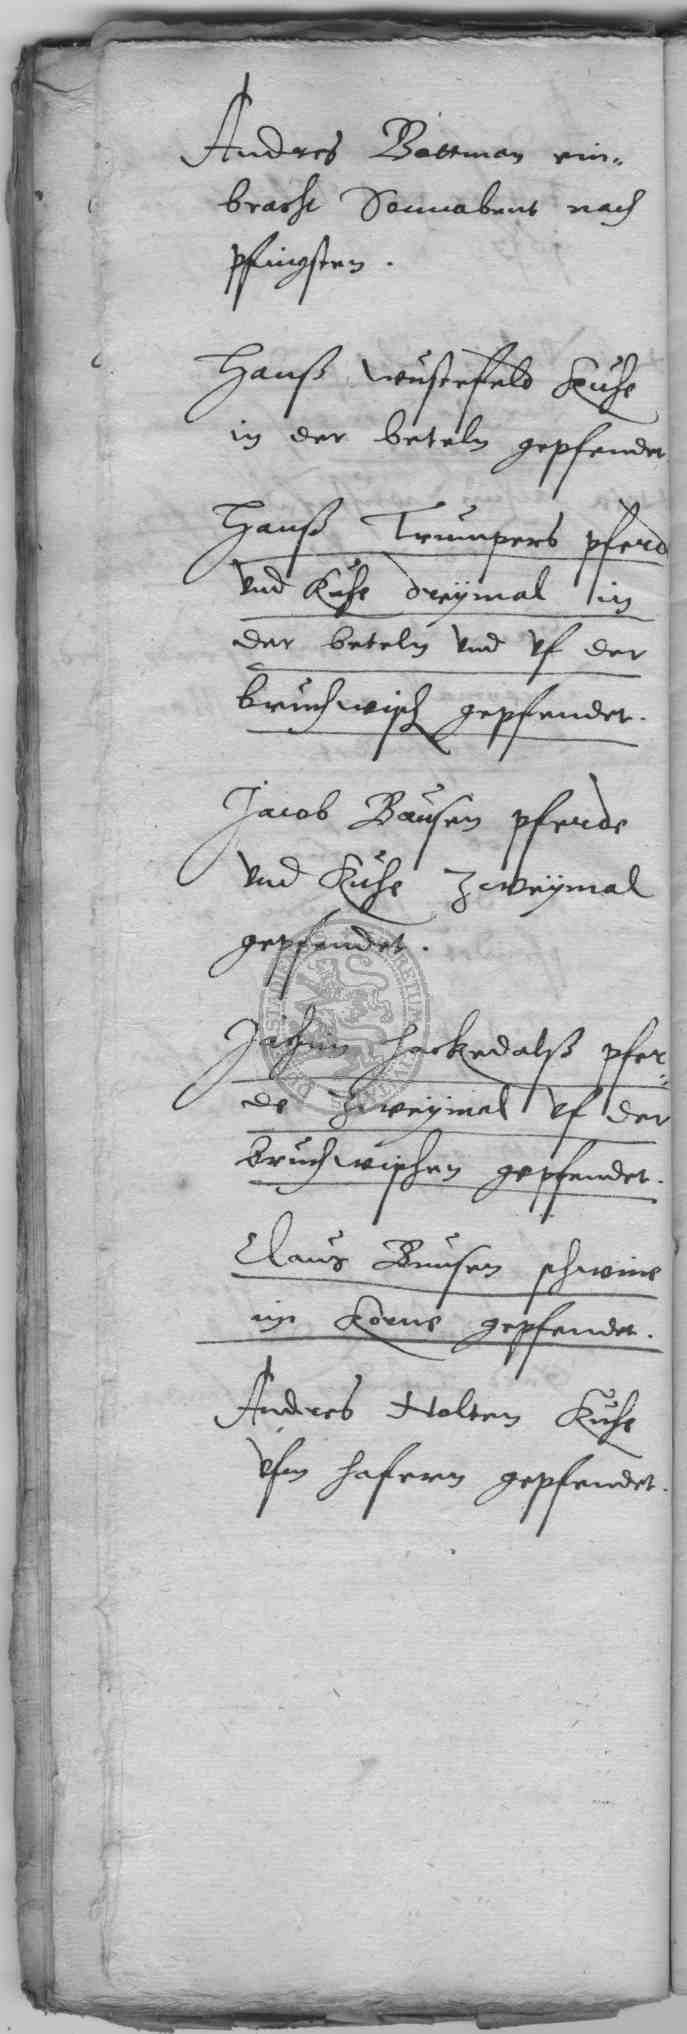 Andres Battman ein-
bracht Sonnabent nach
pfingsten.
Hanß wüstefeld Kuhe
in der beteln gepfendet
Hanß Trumpers pferd
vnd Kuhe dreymal in
der beteln vnd vf der
bruchwisch gepfendet.
Jacob Bausen pferde
vnd Kuhe zweymal
gepfendet.
Jochim Hackedalß pfer-
de zweymal vf der
bruchwischen gepfendet.
Claus Bausen schweine
im Korne gepfendet.
Andres Nolten Kuhe
vfm hafern gepfendet.